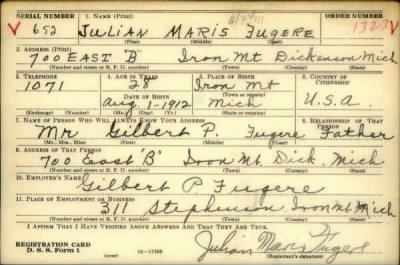 SERIAL NUMBER 1. NAME (Print) ORDER NUMBER
V 652 JULIAN MARIS FUGERE V
(First) (Middle) (Last)
2. ADDRESS (Print)
700 EAST "B" Iron Mt Dickenson Mich
(Number and street or R. F. D. number) (Town) (County) (State)
3. TELEPHONE 4. AGE IN YEARS 5. PLACE OF BIRTH 6. COUNTRY OF CITIZENSHIP
1071 28 Iron Mt
DATE OF BIRTH (Town or county)
Aug 1-1912 Mich U.S.A.
(Exchange) (Number) (Mo.) (Day) (Yr.) (State or country)
7. NAME OF PERSON WHO WILL ALWAYS KNOW YOUR ADDRESS 8. RELATIONSHIP OF THAT PERSON
Mr Gilbert P. Fugere Father
(Mr., Mrs., Miss) (First) (Middle) (Last)
9. ADDRESS OF THAT PERSON
700 East "B" Iron Mt. Dick. Mich
(Number and street or R. F. D. number) (Town) (County) (State)
10. EMPLOYER'S NAME
Gilbert P Fugere
11. PLACE OF EMPLOYMENT OR BUSINESS
311 Stephenson Iron Mt Mich
(Number and street or R. F. D. number) (Town) (County) (State)
I AFFIRM THAT I HAVE VERIFIED ABOVE ANSWERS AND THAT THEY ARE TRUE.
REGISTRATION CARD
D. S. S. Form 1 (over) Julian Maris Fugere
(Registrant's signature)